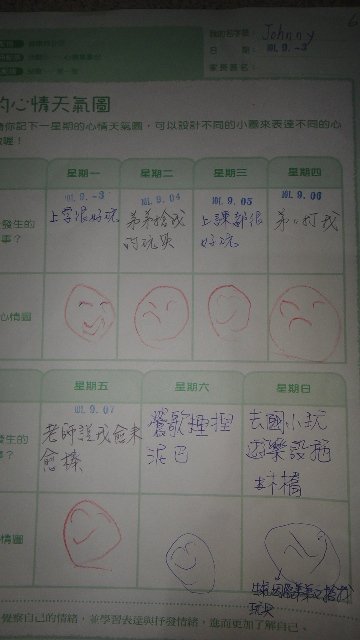 我的名字是: Johnny
日 期: 101.9.-3
家長簽名:
的心情天氣圖
你記下一星期的心情天氣圖，可以設計不同的小圖來表達不同的心
喔！
星期一 星期二 星期三 星期四
101.9.-3 101.9.04 101.9.05 101.9.06
發生的
事？
上學很好玩
弟弟搶我
的玩具
上課都很
好玩
弟弟打我
心情圖
星期五 星期六 星期日
101.9.07
發生的
事？
老師說我愈來
愈棒
鶯歌捏捏
泥巴
去國小玩
遊樂設施
心情圖
生氣因為弟弟又搶我
玩具
覺察自己的情緒，並學習表達與抒發情緒，進而更加了解自己。